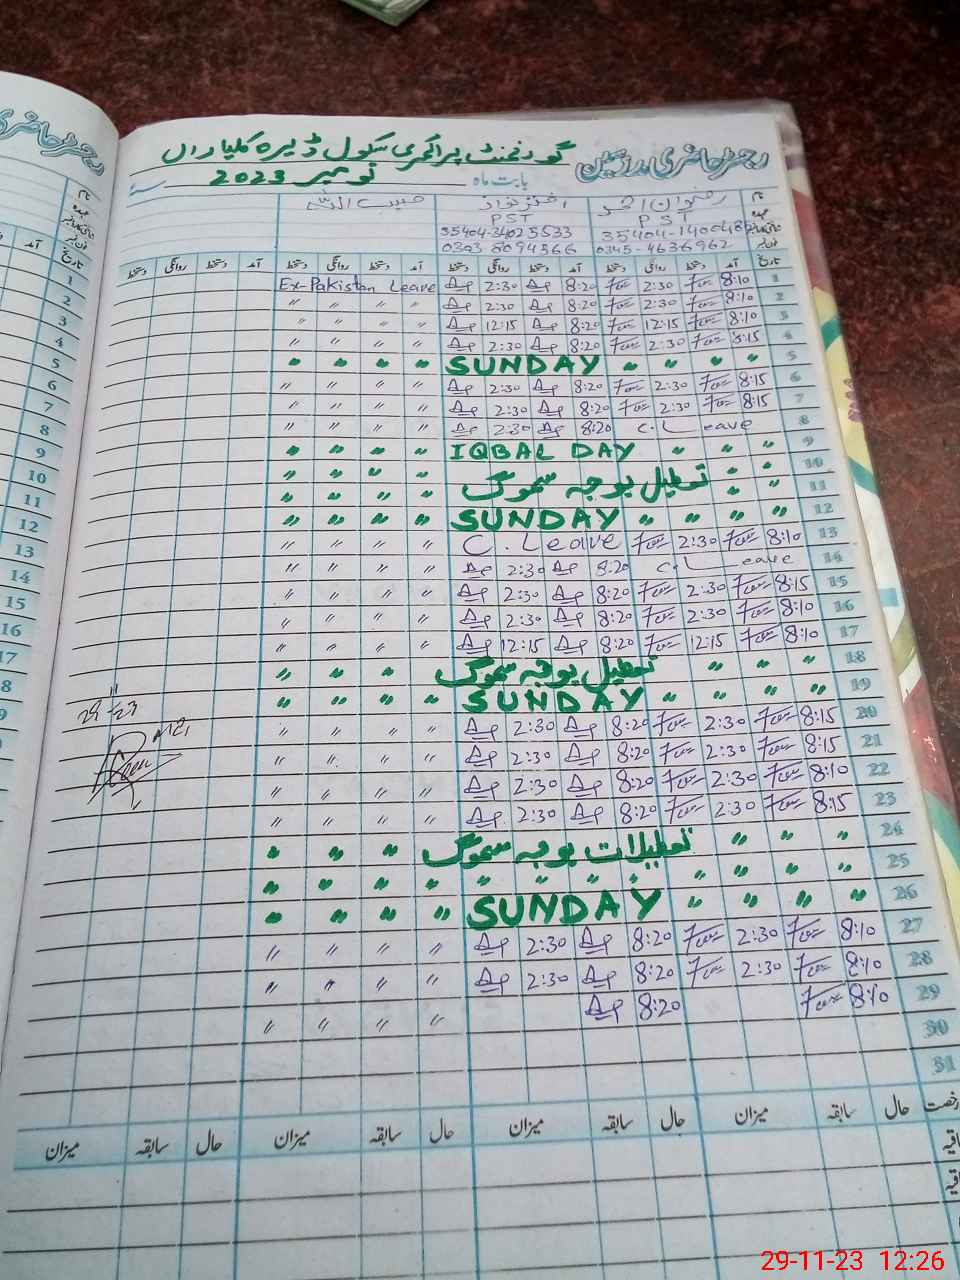 رجسٹر حاضری مدرسین گورنمنٹ پرائمری سکول ڈیرہ کلیاراں
بابت ماہ نومبر 2023
نام رضوان احمد اختر نواز حبیب اللہ
عہدہ PST PST
35404-34025533
فون نمبر 0345-4636962 0303 8094566
تاریخ آمد دستخط روانگی دستخط آمد دستخط روانگی دستخط آمد دستخط روانگی دستخط آمد دستخط روانگی دستخط
1 8:10 2:30 8:20 2:30 Ex-Pakistan Leave
2 8:10 2:30 8:20 2:30 " " " "
3 8:10 12:15 8:20 12:15 " " " "
4 8:15 2:30 8:20 2:30 " " " "
5 " " " SUNDAY " " " "
6 8:15 2:30 8:20 2:30 " " " "
7 8:15 2:30 8:20 2:30 " " " "
8 C.Leave 8:20 2:30 " " " "
9 " " " IQBAL DAY " " " "
10 " " تعطیل بوجہ سموگ " " " "
11 " " " " " "
12 " " " " SUNDAY " " " "
13 8:10 2:30 C. Leave " " " "
14 C.L eave 8:20 2:30 " " " "
15 8:15 2:30 8:20 2:30 " " " "
16 8:10 2:30 8:20 2:30 " " " "
17 8:10 12:15 8:20 12:15 " " " "
18 " " " تعطیل بوجہ سموگ " " "
19 " " " " SUNDAY " " " "
20 8:15 2:30 8:20 2:30 " " " "
21 8:15 2:30 8:20 2:30 " " " "
22 8:10 2:30 8:20 2:30 " " " "
23 8:15 2:30 8:20 2:30 " " " "
24 " " " " تعطیلات بوجہ سموگ " " "
25 " " " " " " " " " " "
26 " " " " SUNDAY " " " "
27 8:10 2:30 8:20 2:30 " " " "
28 8:10 2:30 8:20 2:30 " " " "
29 8:10 8:20 " " " "
30
31
رخصت حال سابقہ میزان حال سابقہ میزان حال سابقہ میزان حال سابقہ میزان
رجسٹر حاضری
نام
عہدہ
فون نمبر
تاریخ
آمد
1
2
3
4
5
6
7
8
9
10
11
12
13
14
15
16
17
8
9
29-11-23 12:26